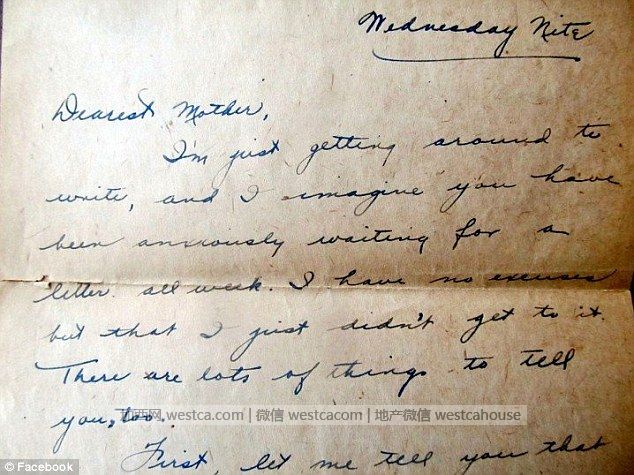 Wednesday Nite
Dearest Mother,
I'm just getting around to
write, and I imagine you have
been anxiously waiting for a
letter all week. I have no excuses
but that I just didn't get to it.
There are lots of things to tell
you, too.
加西网 westca.com | 微信 westcacom | 地产微信 westcahouse
First, let me tell you that
© Facebook